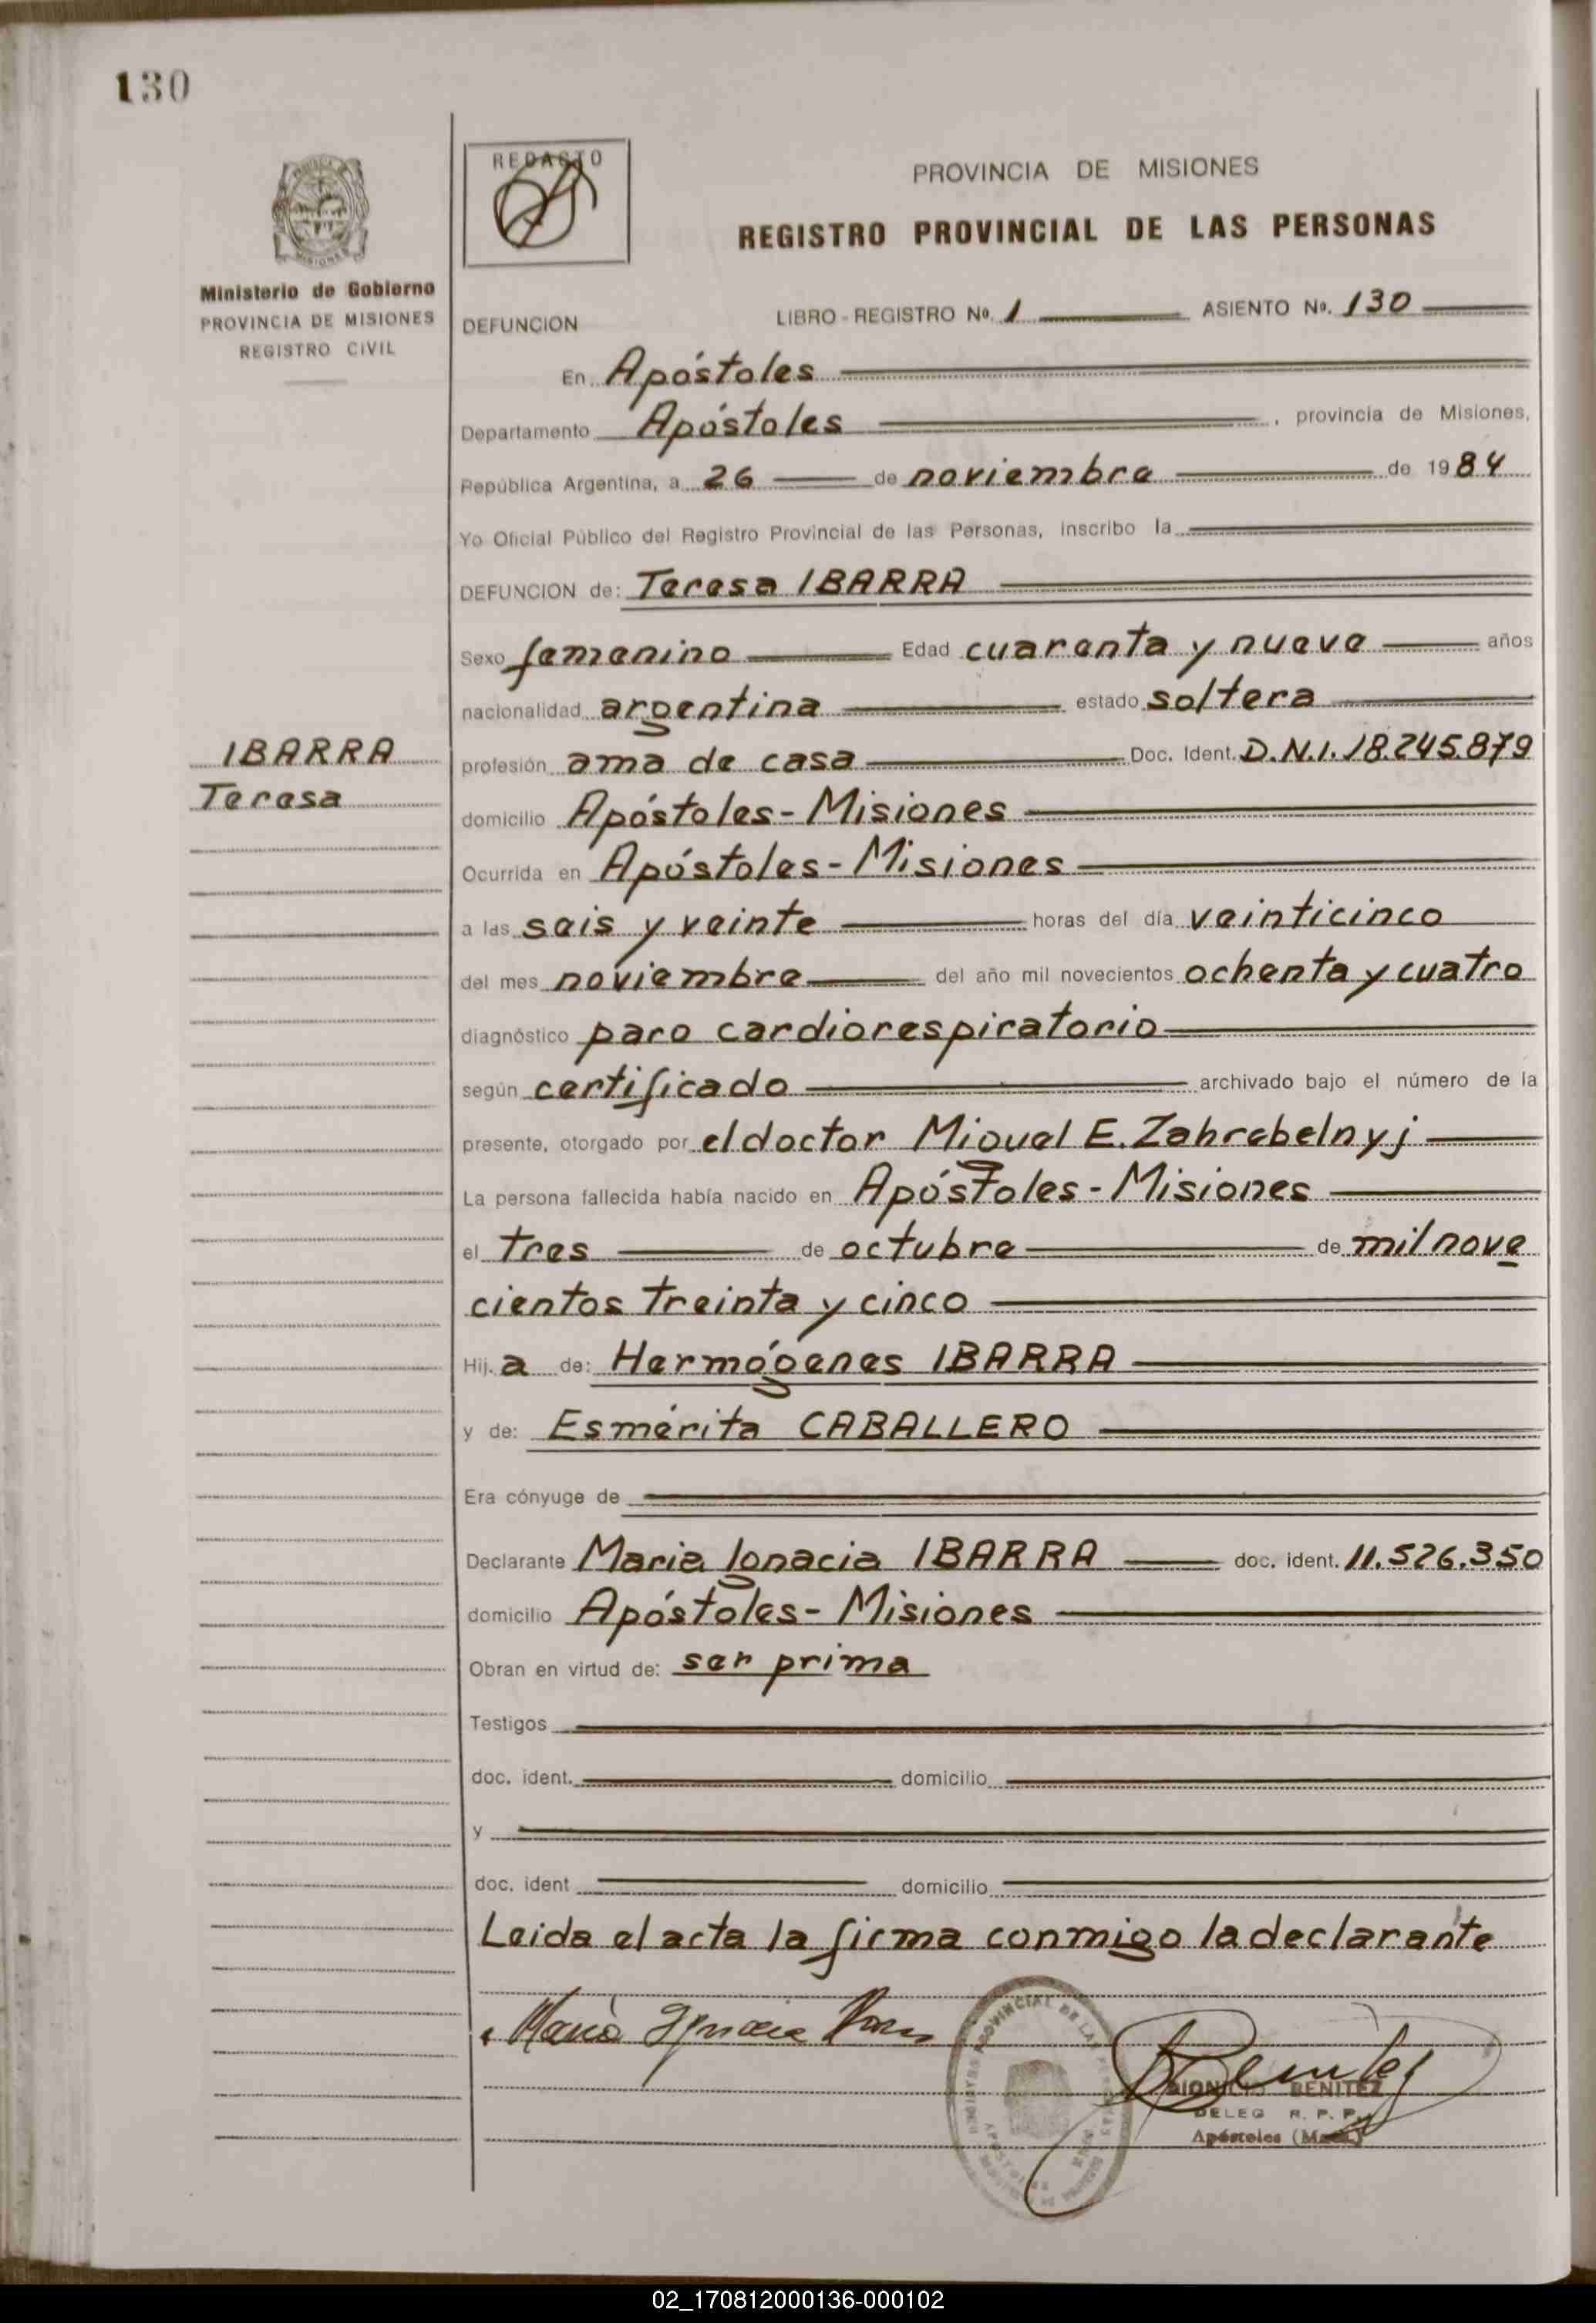 130
REDACTO
PROVINCIA DE MISIONES
REGISTRO PROVINCIAL DE LAS PERSONAS
Ministerio de Gobierno
PROVINCIA DE MISIONES
REGISTRO CIVIL
DEFUNCION LIBRO - REGISTRO Nº. 1 ASIENTO Nº. 130
En Apóstoles
Departamento Apóstoles, provincia de Misiones,
República Argentina, a 26 de noviembre de 1984
Yo Oficial Público del Registro Provincial de las Personas, inscribo la
DEFUNCION de: Teresa IBARRA
Sexo femenino Edad cuarenta y nueve años
nacionalidad argentina estado soltera
IBARRA
Teresa
profesión ama de casa Doc. Ident. D.N.I. 18.245.879
domicilio Apóstoles - Misiones
Ocurrida en Apóstoles - Misiones
a las seis y veinte horas del día veinticinco
del mes noviembre del año mil novecientos ochenta y cuatro
diagnóstico paro cardiorespiratorio
según certificado archivado bajo el número de la
presente, otorgado por el doctor Miguel E. Zahrebelnyj
La persona fallecida había nacido en Apóstoles - Misiones
el tres de octubre de mil nove
cientos treinta y cinco
Hij. a de: Hermógenes IBARRA
y de: Esmérita CABALLERO
Era cónyuge de
Declarante María Ignacia IBARRA doc. ident. 11.526.350
domicilio Apóstoles - Misiones
Obran en virtud de: ser prima
Testigos
doc. ident. domicilio
y
doc. ident domicilio
Leida el acta la firma conmigo la declarante
María Ignacia
DIONICIO BENITEZ
DELEG R. P. P.
Apóstoles
02_170812000136-000102